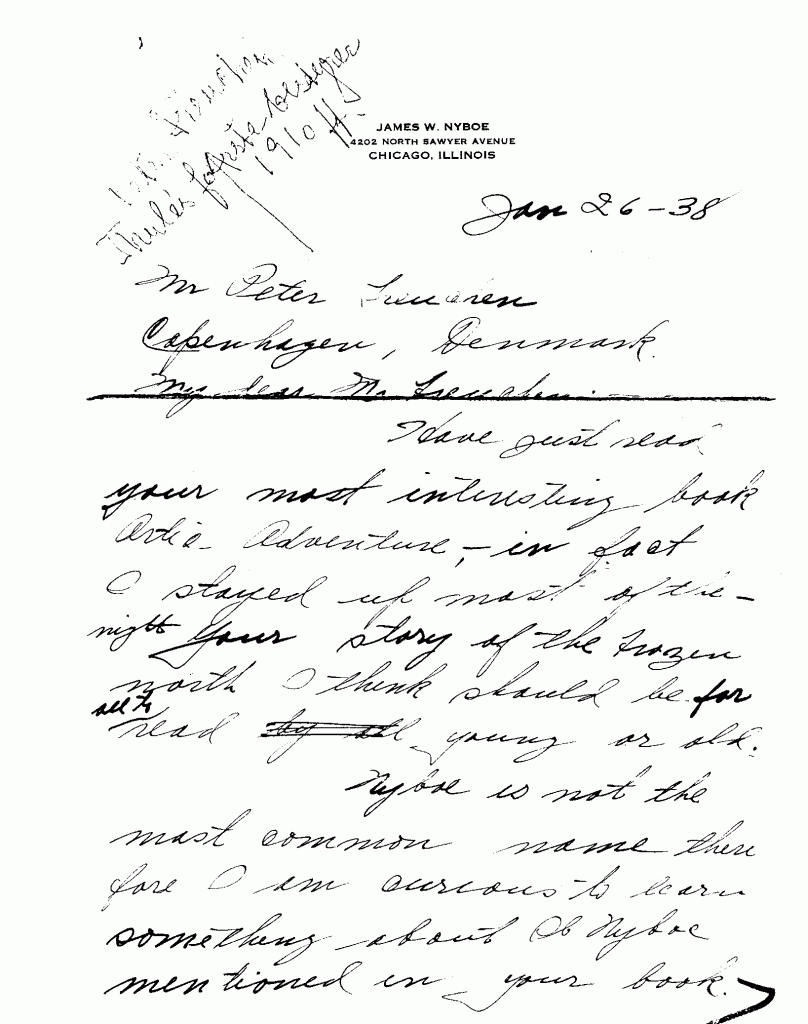 Thule's første bestyrer
1910 ff.
JAMES W. NYBOE
4202 NORTH SAWYER AVENUE
CHICAGO, ILLINOIS
Jan 26-38
Mr Peter Freuchen
Copenhagen, Denmark.
My dear Mr. Freuchen:
Have just read
your most interesting book
Artic Adventure, - in fact
I stayed up most of the -
night. Your story of the frozen
north I think should be for
all to
read by all young or old.
Nyboe is not the
most common name there
fore I am curious to learn
something about Ob Nyboe
mentioned in your book.